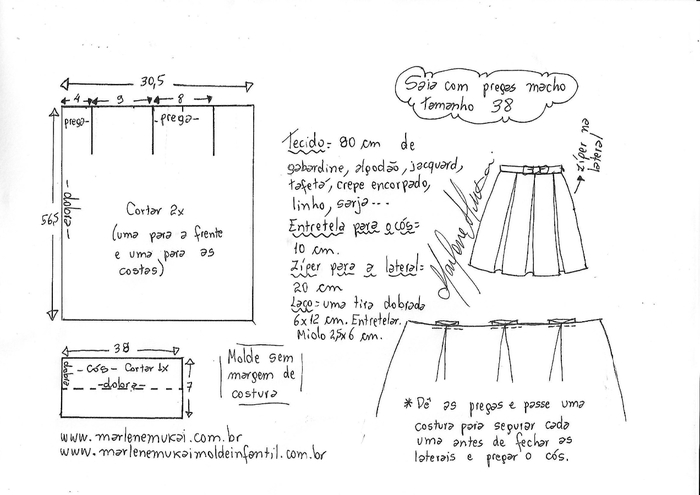 30,5
4
9
8
prega-
-prega-
-dobra-
56,5
Cortar 2x
(uma para a frente
e uma para as
costas)
38
dobra
- cós - Cortar 1x
-dobra-
7
Molde sem
margem de
costura
www.marlenemukai.com.br
www.marlenemukaimoldeinfantil.com.br
Saia com pregas macho
tamanho 38
Tecido= 80 cm de
gabardine, algodão, jacquard,
tafetá, crepe encorpado,
linho, sarja...
Entretela para o cós=
10 cm.
Zíper para a lateral=
20 cm
Laço= uma tira dobrada
6x12 cm. Entretelar.
Miolo 2,5x6 cm.
Marlene Mukai
zíper na
lateral
* Dê as pregas e passe uma
costura para segurar cada
uma antes de fechar as
laterais e pregar o cós.